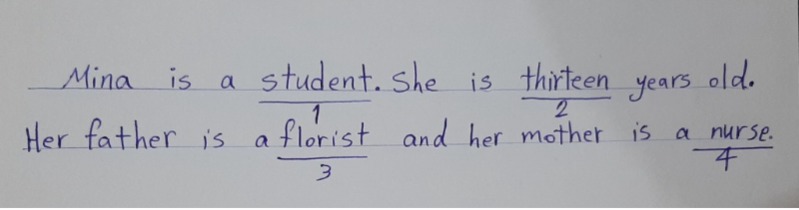 Mina is a student. She is thirteen years old.
1 2
Her father is a florist and her mother is a nurse.
3 4